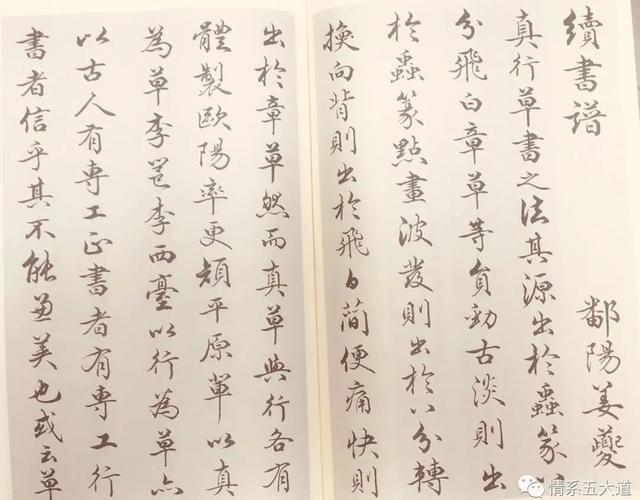 續書譜 鄱陽姜夔
真行草書之法其源出於蟲篆八
分飛白章草等員勁古淡則出
於蟲篆點畫波發則出於八分轉
換向背則出於飛白簡便痛快則
出於章草然而真草與行各有
體製歐陽率更顏平原軰以真
為草李邕李西臺以行為草亦
以古人有專工正書者有專工行
書者信乎其不能兼美也或云草
情系五大道